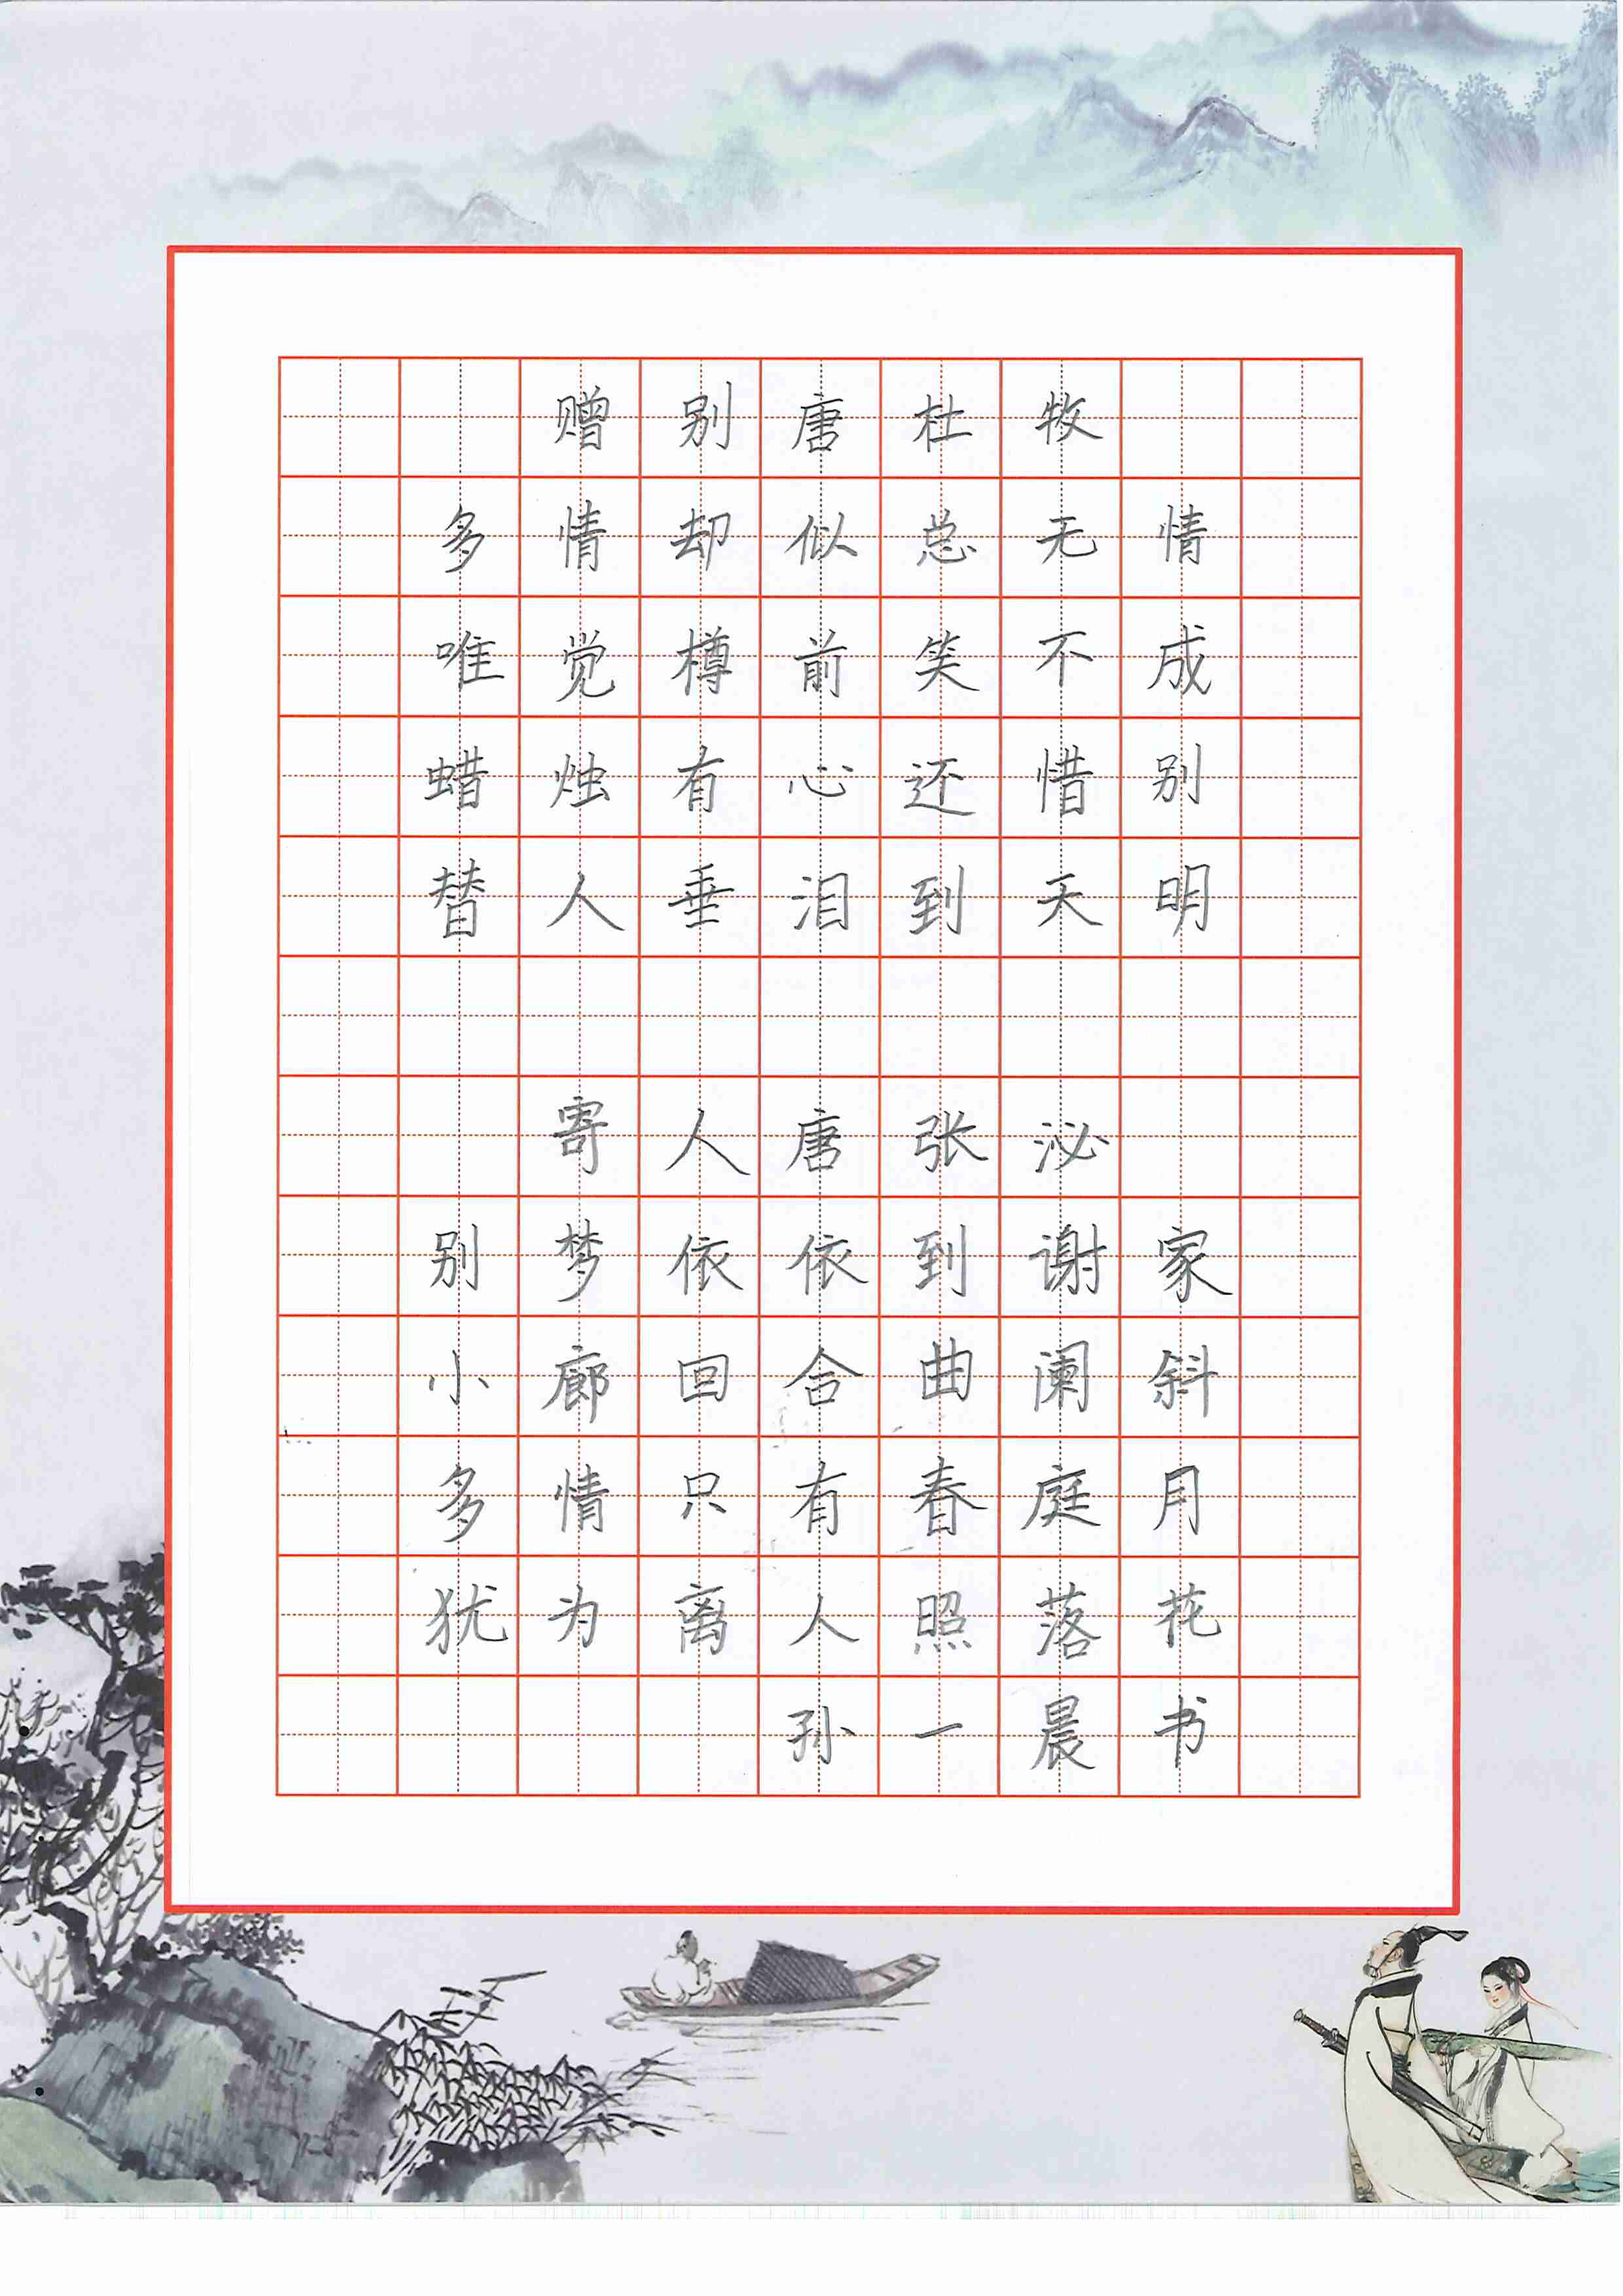 赠别唐杜牧
多情却似总无情
唯觉樽前笑不成
蜡烛有心还惜别
替人垂泪到天明
寄人唐张泌
别梦依依到谢家
小廊回合曲阑斜
多情只有春庭月
犹为离人照落花
孙一晨书